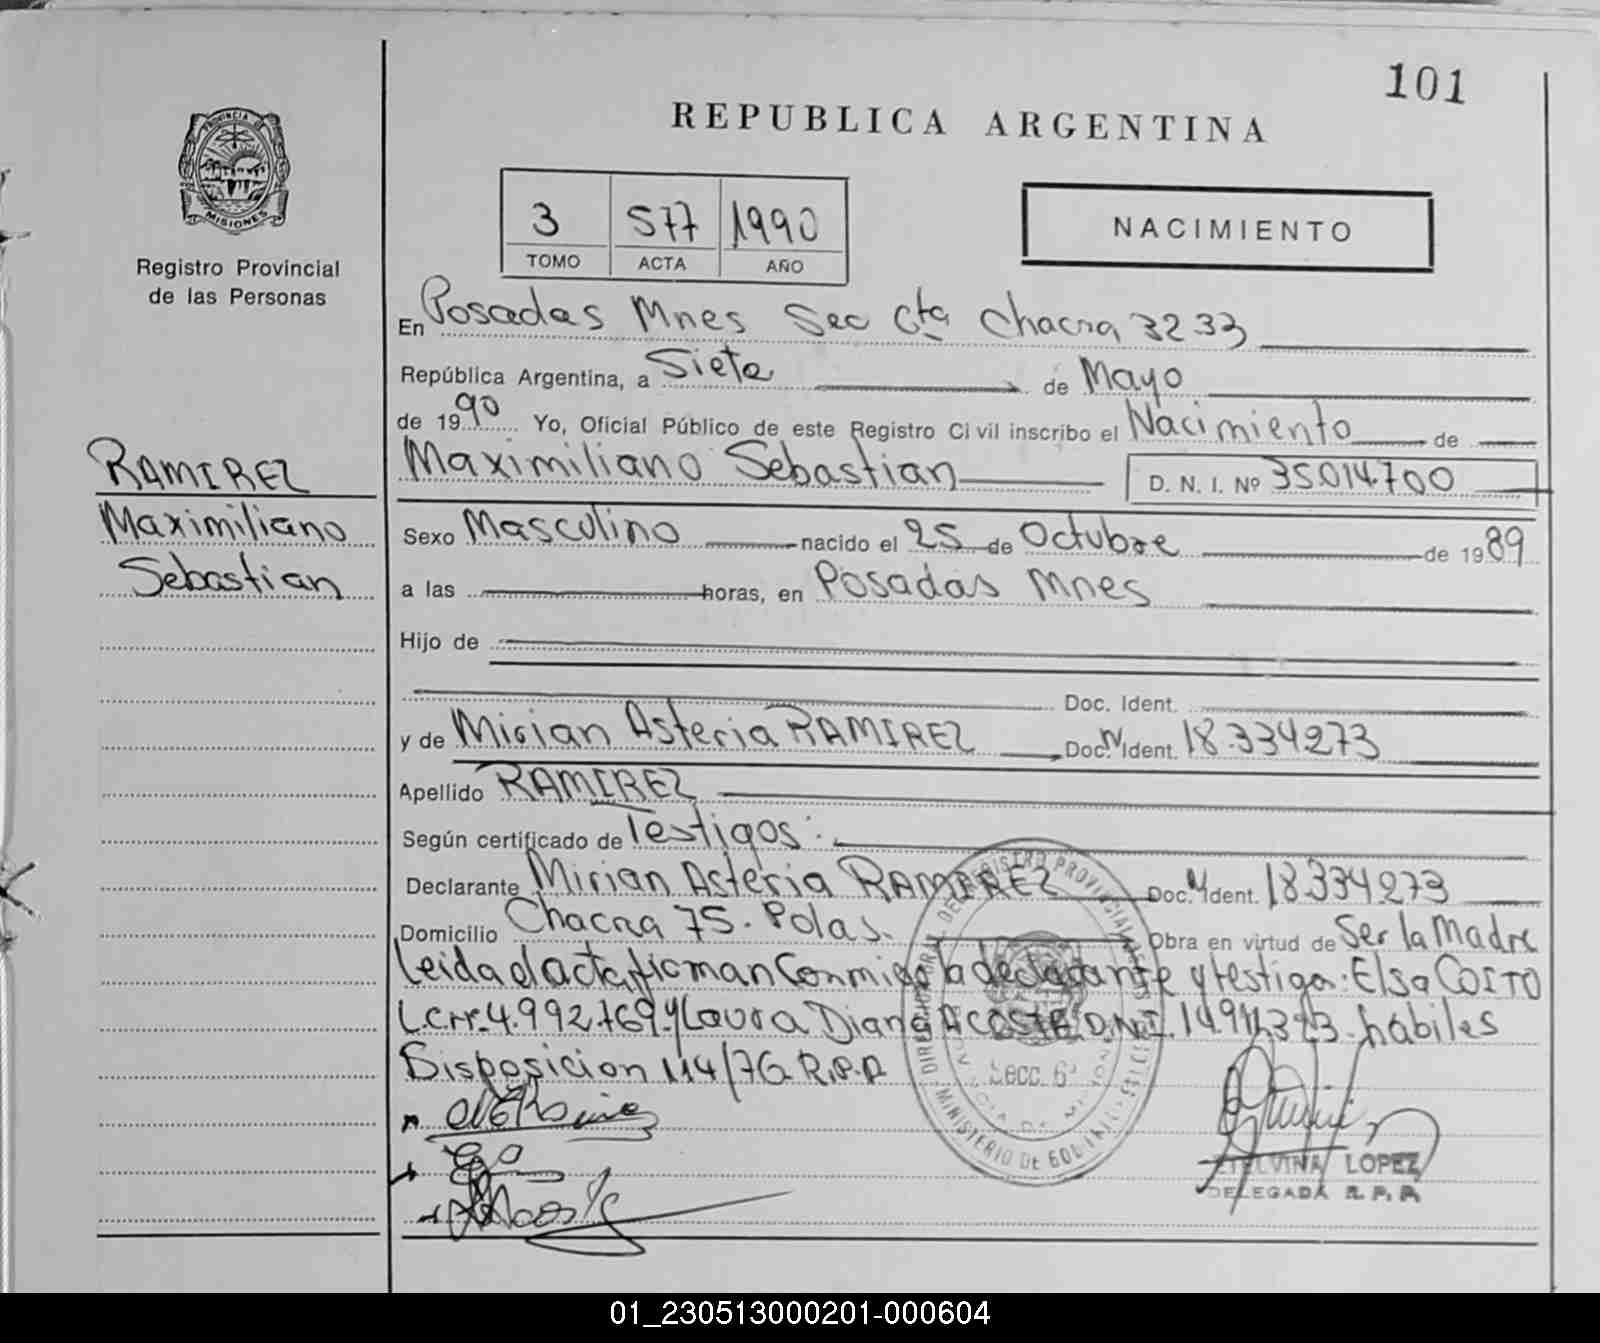 101
REPUBLICA ARGENTINA
PROVINCIA DE
MISIONES
Registro Provincial
de las Personas
3 577 1990
TOMO ACTA AÑO
NACIMIENTO
En Posadas Mnes Sec 6ta Chacra 32 33
República Argentina, a Siete de Mayo
de 1990 Yo, Oficial Público de este Registro Civil inscribo el Nacimiento de
Maximiliano Sebastian D. N. I. Nº 35.014.700
RAMIREZ
Maximiliano
Sebastian
Sexo Masculino nacido el 25 de Octubre de 1989
a las horas, en Posadas Mnes
Hijo de
Doc. Ident.
y de Mirian Asteria RAMIREZ Doc. N Ident. 18.334.273
Apellido RAMIREZ
Según certificado de Testigos:
Declarante Mirian Asteria RAMIREZ Doc. N Ident. 18.334.273
Domicilio Chacra 75. Pdas. Obra en virtud de Ser la Madre
Leida el acta firman Conmigo la declarante y testigo: Elsa COITO
L.C.nº 4.992.769 y Laura Diana ACOSTA D.N.I. hábiles
Disposicion 114/76 R.P.P
Secc. 6ª
ETELVINA LOPEZ
DELEGADA R. P. P.
01_230513000201-000604